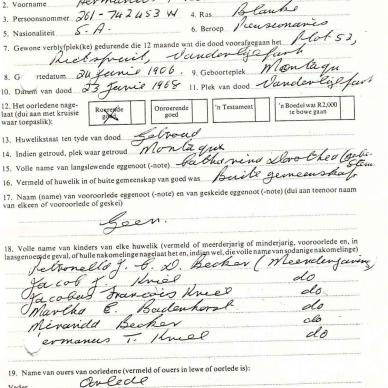 2. Voornaam Hermanus
3. Persoonsnommer 261-742453 W 4. Ras Blanke
5. Nasionaliteit S-A. 6. Beroep Pensionaris
7. Gewone verblyfplek(ke) gedurende die 12 maande wat die dood voorafgegaan het Plot 52,
Rietspruit, Vanderbijlpark
8. Geboortedatum 24 Junie 1906. 9. Geboorteplek Montagu
10. Datum van dood 23 Junie 1968 11. Plek van dood Vanderbijlpark
12. Het oorledene nage-
laat (dui aan met kruisie
waar toepaslik):
Roerende
goed
Onroerende
goed
'n Testament
'n Boedel wat R2,000
te bowe gaan
13. Huwelikstaat ten tyde van dood Getroud
14. Indien getroud, plek waar getroud Montagu
15. Volle name van langslewende eggenoot (-note) Catharina Dorothea (gebore
16. Vermeld of huwelik in of buite gemeenskap van goed was Buite gemeenskap
17. Naam (name) van vooroorlede eggenoot (-note) en van geskeide eggenoot (-note) (dui aan teenoor naam
van elkeen of vooroorlede of geskei)
Geen.
18. Volle name van kinders van elke huwelik (vermeld of meerderjarig of minderjarig, vooroorlede en, in
laasgenoemde geval, of hulle nakomelinge nagelaat het en, indien wel, die volle name van sodanige nakomelinge)
Petronella J. C. D. Becker (Meerderjarig)
Jacob J. Kniel do
Jacobus Francois Kniel do
Martha E. Badenhorst do
Miranda Becker do
Hermanus T. Kniel do
19. Name van ouers van oorledene (vermeld of ouers in lewe of oorlede is):
Vader Oorlede